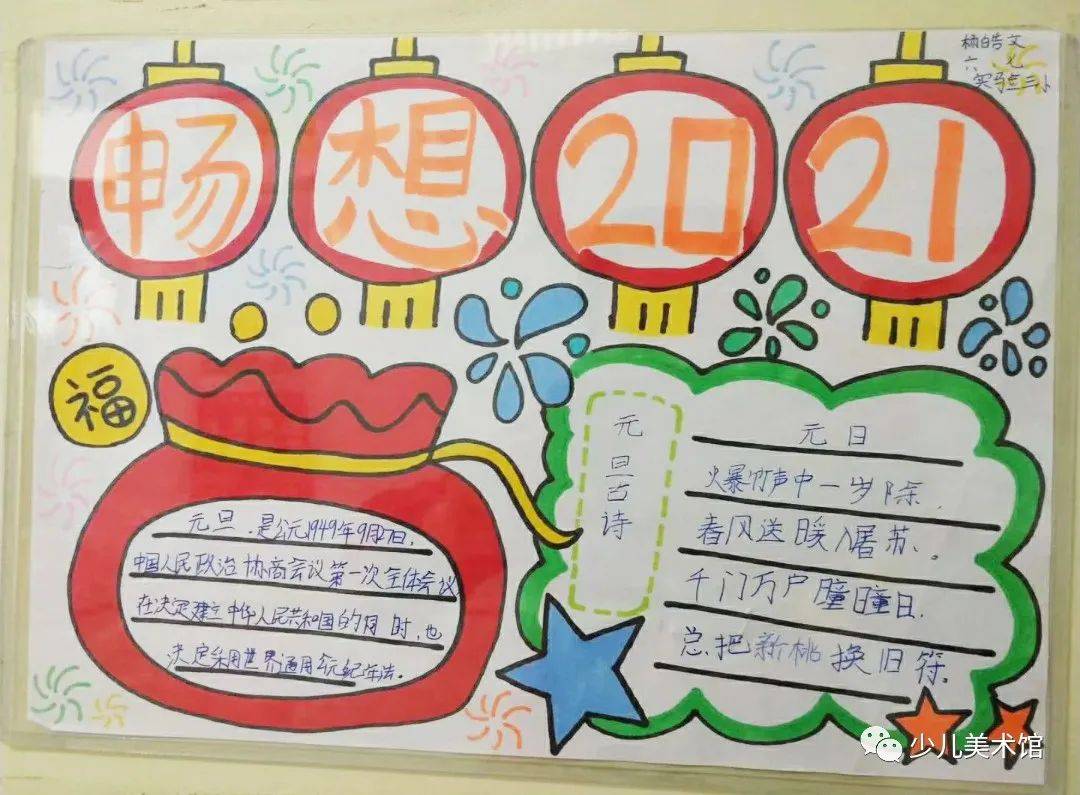 皓文
六
实验三小
畅想2021
福
元旦,是公元1949年9月27日,
中国人民政治协商会议第一次全体会议
在决定建立中华人民共和国的同时,也
决定采用世界通用公元纪年法。
元旦古诗
元日
爆竹声中一岁除,
春风送暖入屠苏。
千门万户曈曈日,
总把新桃换旧符.
少儿美术馆